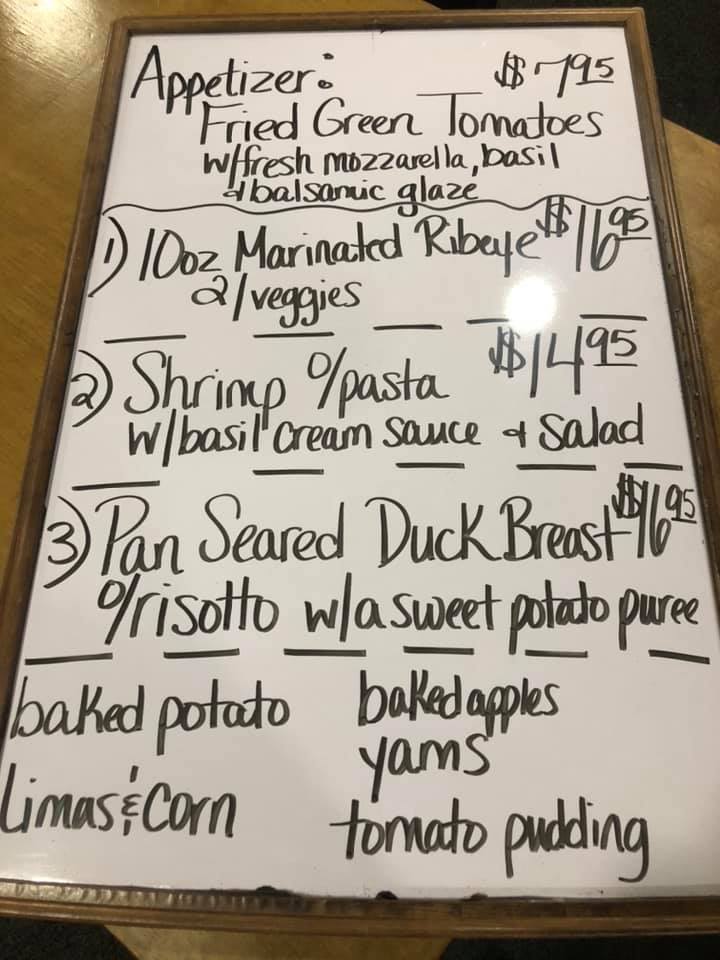 Appetizer: $7.95
Fried Green Tomatoes
w/fresh mozzarella, basil
& balsamic glaze
1) 10oz Marinated Ribeye $16.95
2/veggies
2) Shrimp o/pasta $14.95
w/basil cream sauce & salad
3) Pan Seared Duck Breast $16.95
o/risotto w/a sweet potato puree
baked potato baked apples
yams
Limas & Corn
tomato pudding